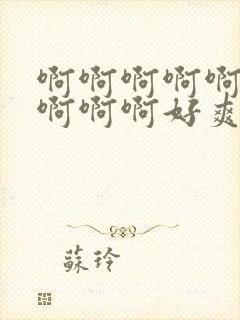 啊啊啊啊啊
啊啊啊好爽
蘇玲